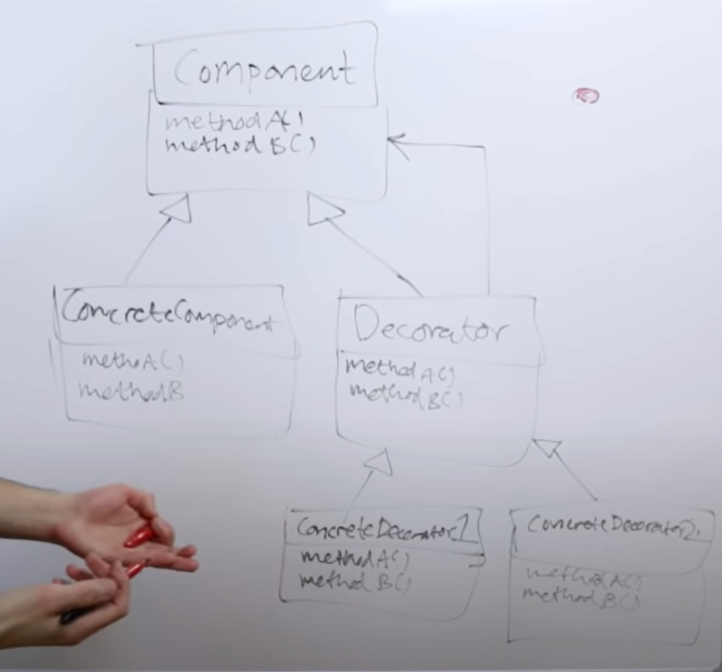 Component
methodA()
methodB()
ConcreteComponent
methoA()
methodB
Decorator
methodA()
methodB()
ConcreteDecorator1
methodA()
methodB()
ConcreteDecorator2.
methodA()
methodB()